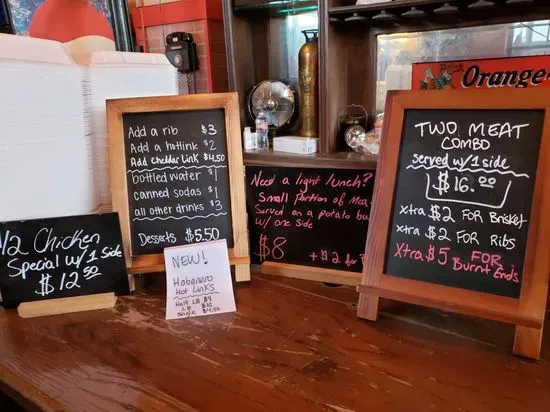 1/2 Chicken
Special w/1 side
$12.50
Add a rib $3
Add a hotlink $2
Add cheddar Link $4.50
bottled water $1
canned sodas $1
all other drinks $3
Desserts $5.50
NEW!
Habanero
Hot Links
Half LB $9
LB
Single $4.50
Need a light lunch?
Small portion of Mea
Served on a potato bu
w/ one side
$8
+ $2 for
Orange
TWO MEAT
COMBO
Served w/1 side
$16.00
Xtra $2 FOR Brisket
Xtra $2 FOR Ribs
Xtra $5 FOR
Burnt Ends